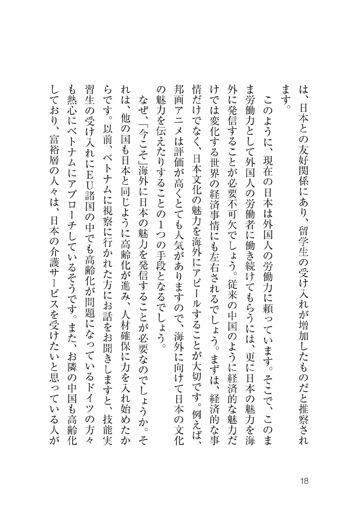 は、日本との友好関係にあり、留学生の受け入れが増加したものだと推察され
ます。
このように、現在の日本は外国人の労働力に頼っています。そこで、このま
ま労働力として外国人の労働者に働き続けてもらうには、更に日本の魅力を海
外に発信することが必要不可欠でしょう。従来の中国のように経済的な魅力だ
けでは変化する世界の経済事情にも左右されるでしょう。まずは、経済的な事
情だけでなく、日本文化の魅力を海外にアピールすることが大切です。例えば、
邦画アニメは評価が高くとても人気がありますので、海外に向けて日本の文化
の魅力を伝えたりすることの1つの手段となるでしょう。
なぜ、「今こそ」海外に日本の魅力を発信することが必要なのでしょうか。そ
れは、他の国も日本と同じように高齢化が進み、人材確保に力を入れ始めたか
らです。以前、ベトナムに視察に行かれた方にお話をお聞きしますと、技能実
習生の受け入れにEU諸国の中でも高齢化が問題になっているドイツの方々
も熱心にベトナムにアプローチしているそうです。また、お隣の中国も高齢化
しており、富裕層の人々は、日本の介護サービスを受けたいと思っている人が
18